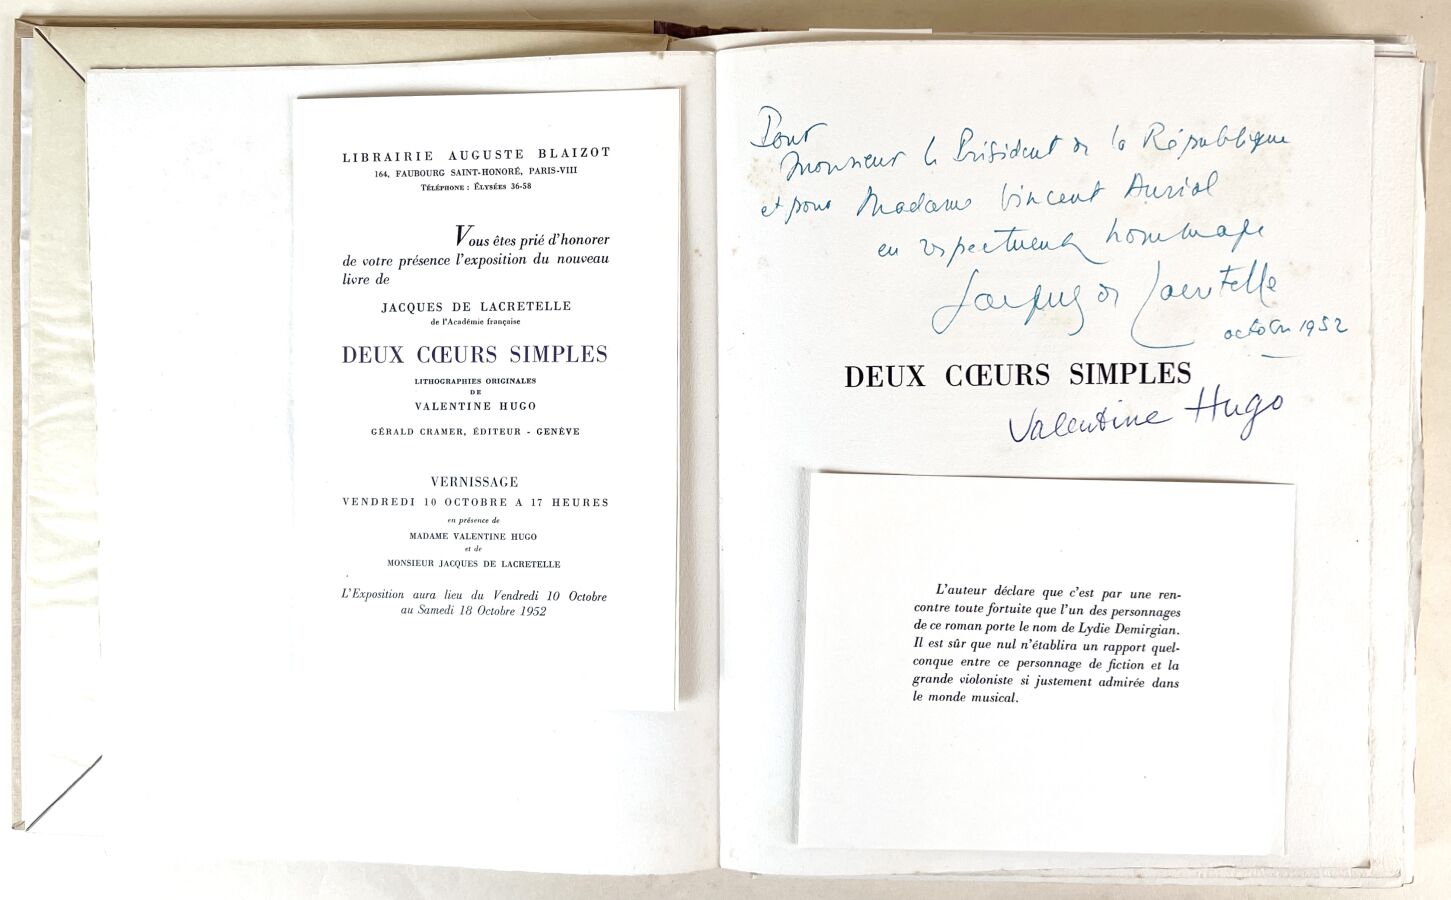 LIBRAIRIE AUGUSTE BLAIZOT
164, FAUBOURG SAINT-HONORÉ, PARIS-VIII
TÉLÉPHONE : ÉLYSÉES 36-58
Vous êtes prié d'honorer
de votre présence l'exposition du nouveau
livre de
JACQUES DE LACRETELLE
de l'Académie française
DEUX CŒURS SIMPLES
LITHOGRAPHIES ORIGINALES
DE
VALENTINE HUGO
GÉRALD CRAMER, ÉDITEUR - GENÈVE
VERNISSAGE
VENDREDI 10 OCTOBRE A 17 HEURES
en présence de
MADAME VALENTINE HUGO
et de
MONSIEUR JACQUES DE LACRETELLE
L'Exposition aura lieu du Vendredi 10 Octobre
au Samedi 18 Octobre 1952
Pour
Monsieur le Président de la République
et pour Madame Vincent Auriol
en respectueux hommage
Jacques de Lacretelle
octobre 1952
DEUX CŒURS SIMPLES
Valentine Hugo
L'auteur déclare que c'est par une ren-
contre toute fortuite que l'un des personnages
de ce roman porte le nom de Lydie Demirgian.
Il est sûr que nul n'établira un rapport quel-
conque entre ce personnage de fiction et la
grande violoniste si justement admirée dans
le monde musical.